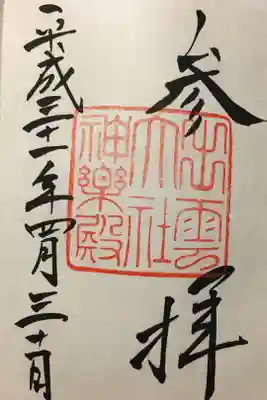 参拝
出雲
大社
神楽殿
平成三十一年四月三十日